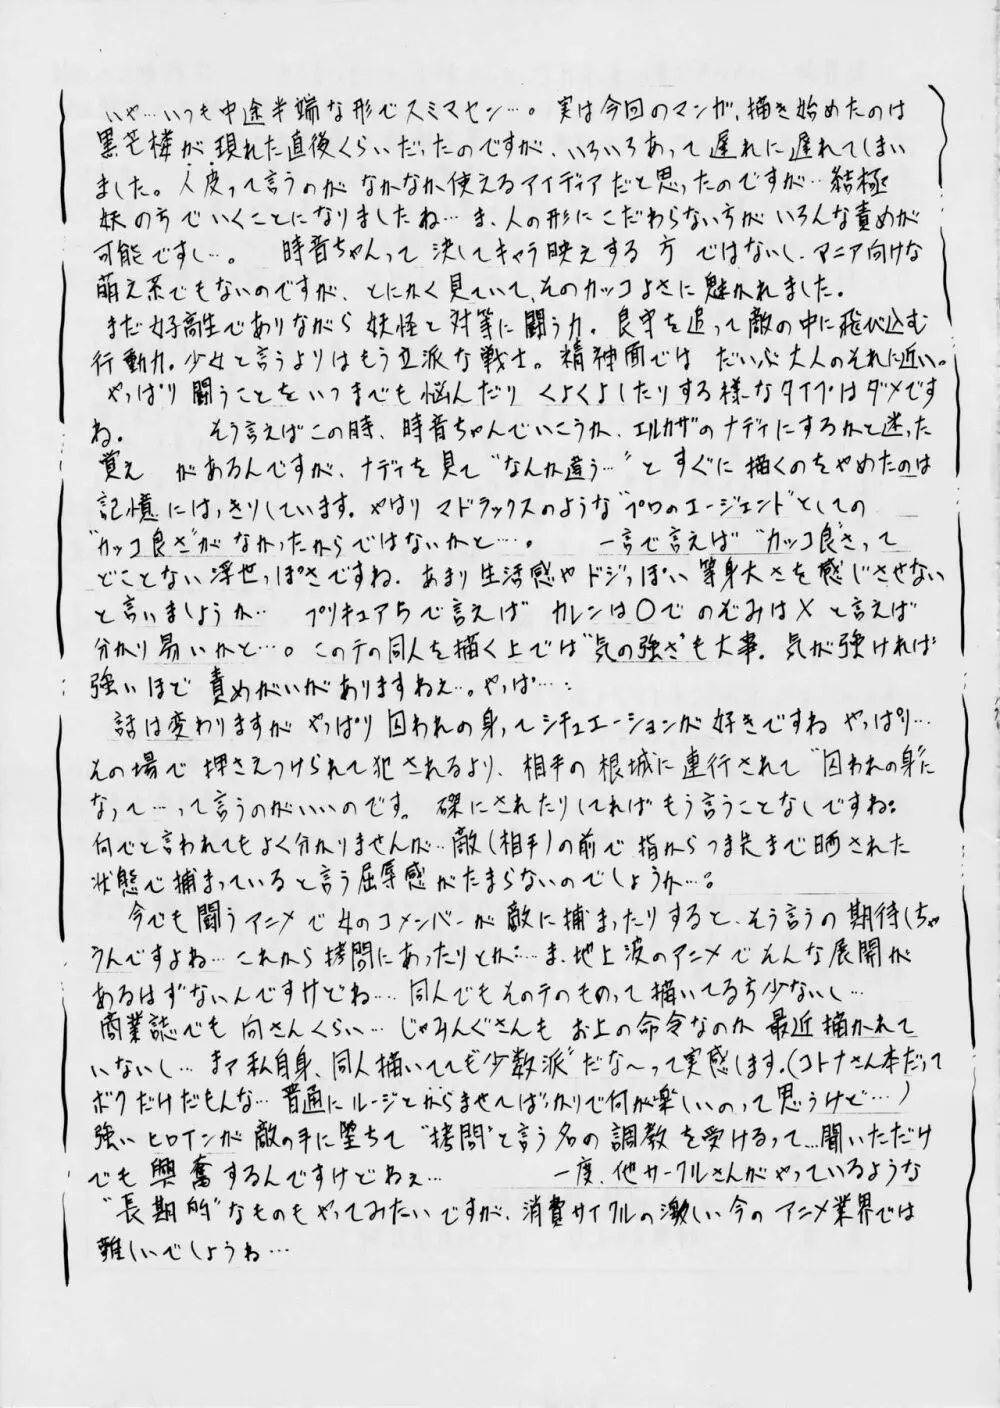 いや…いつも中途半端な形でスミマセン…。実は今回のマンガ、描き始めたのは
黒芒楼が現れた直後くらいだったのですが、いろいろあって遅れに遅れてしまい
ました。人皮って言うのがなかなか使えるアイディアだと思ったのですが…結極
妖の方でいくことになりましたね…ま、人の形にこだわらない方がいろんな責めが
可能ですし…。時音ちゃんって決してキャラ映えする方ではないし、マニア向けな
萌え系でもないのですが、とにかく見ていて、そのカッコよさに魅かれました。
まだ女子高生でありながら妖怪と対等に闘う力。良守を追って敵の中に飛び込む
行動力。少女と言うよりはもう立派な戦士。精神面ではだいぶ大人のそれに近い。
やっぱり闘うことをいつまでも悩んだりくよくよしたりする様なタイプはダメです
ね。そう言えばこの時、時音ちゃんでいこうか、エルカザのナディにするかと迷った
覚えがあるんですが、ナディを見て“なんか違う…”とすぐに描くのをやめたのは
記憶にはっきりしています。やはりマドラックスのような“プロのエージェント”としての
“カッコ良さ”がなかったからではないかと…。一言で言えば“カッコ良さ”って
どことない浮世っぽさですね。あまり生活感やドジっぽい等身大さを感じさせない
と言いましょうか…プリキュア5で言えばカレンは○でのぞみは×と言えば
分かり易いかと…。このテの同人を描く上では“気の強さ”も大事。気が強ければ
強いほど責めがいがありますねぇ…。やっぱ…
話は変わりますがやっぱり囚われの身ってシチュエーションが好きですねやっぱり…
その場で押さえつけられて犯されるより、相手の根城に連行されて“囚われの身”に
なって…って言うのがいいのです。磔にされたりしてればもう言うことなしですね。
何でと言われてもよく分かりませんが…敵(相手)の前で指からつま先まで晒された
状態で捕まっていると言う屈辱感がたまらないのでしょうか…。
今でも闘うアニメで女のコメンバーが敵に捕まったりすると、そう言うの期待しちゃ
うんですよね…これから拷問にあったりとか…ま、地上波のアニメでそんな展開が
あるはずないんですけどね…同人でもそのテのものって描いてる方少ないし…
商業誌でも向さんくらい…じゃみんぐさんもお上の命令なのか最近描かれて
いないし…まァ私自身、同人描いてても“少数派”だな〜って実感します。(コトナさん本だって
ボクだけだもんな…普通にルージとからませてばっかりで何が楽しいのって思うけど…)
強いヒロインが敵の手に堕ちて“拷問”と言う名の調教を受けるって…聞いただけ
でも興奮するんですけどねぇ…一度、他サークルさんがやっているような
“長期的”なものもやってみたいですが、消費サイクルの激しい今のアニメ業界では
難しいでしょうね…